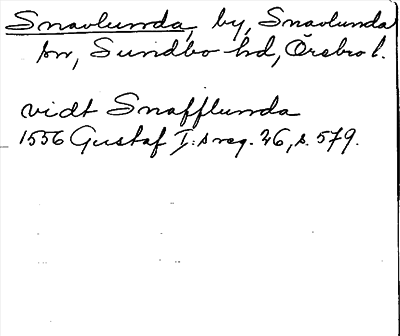 Snavlunda, by, Snavlunda
sn, Sundbo hd, Örebro l.
vidt Snafflunda
1556 Gustaf I:s reg. 26, s. 579.